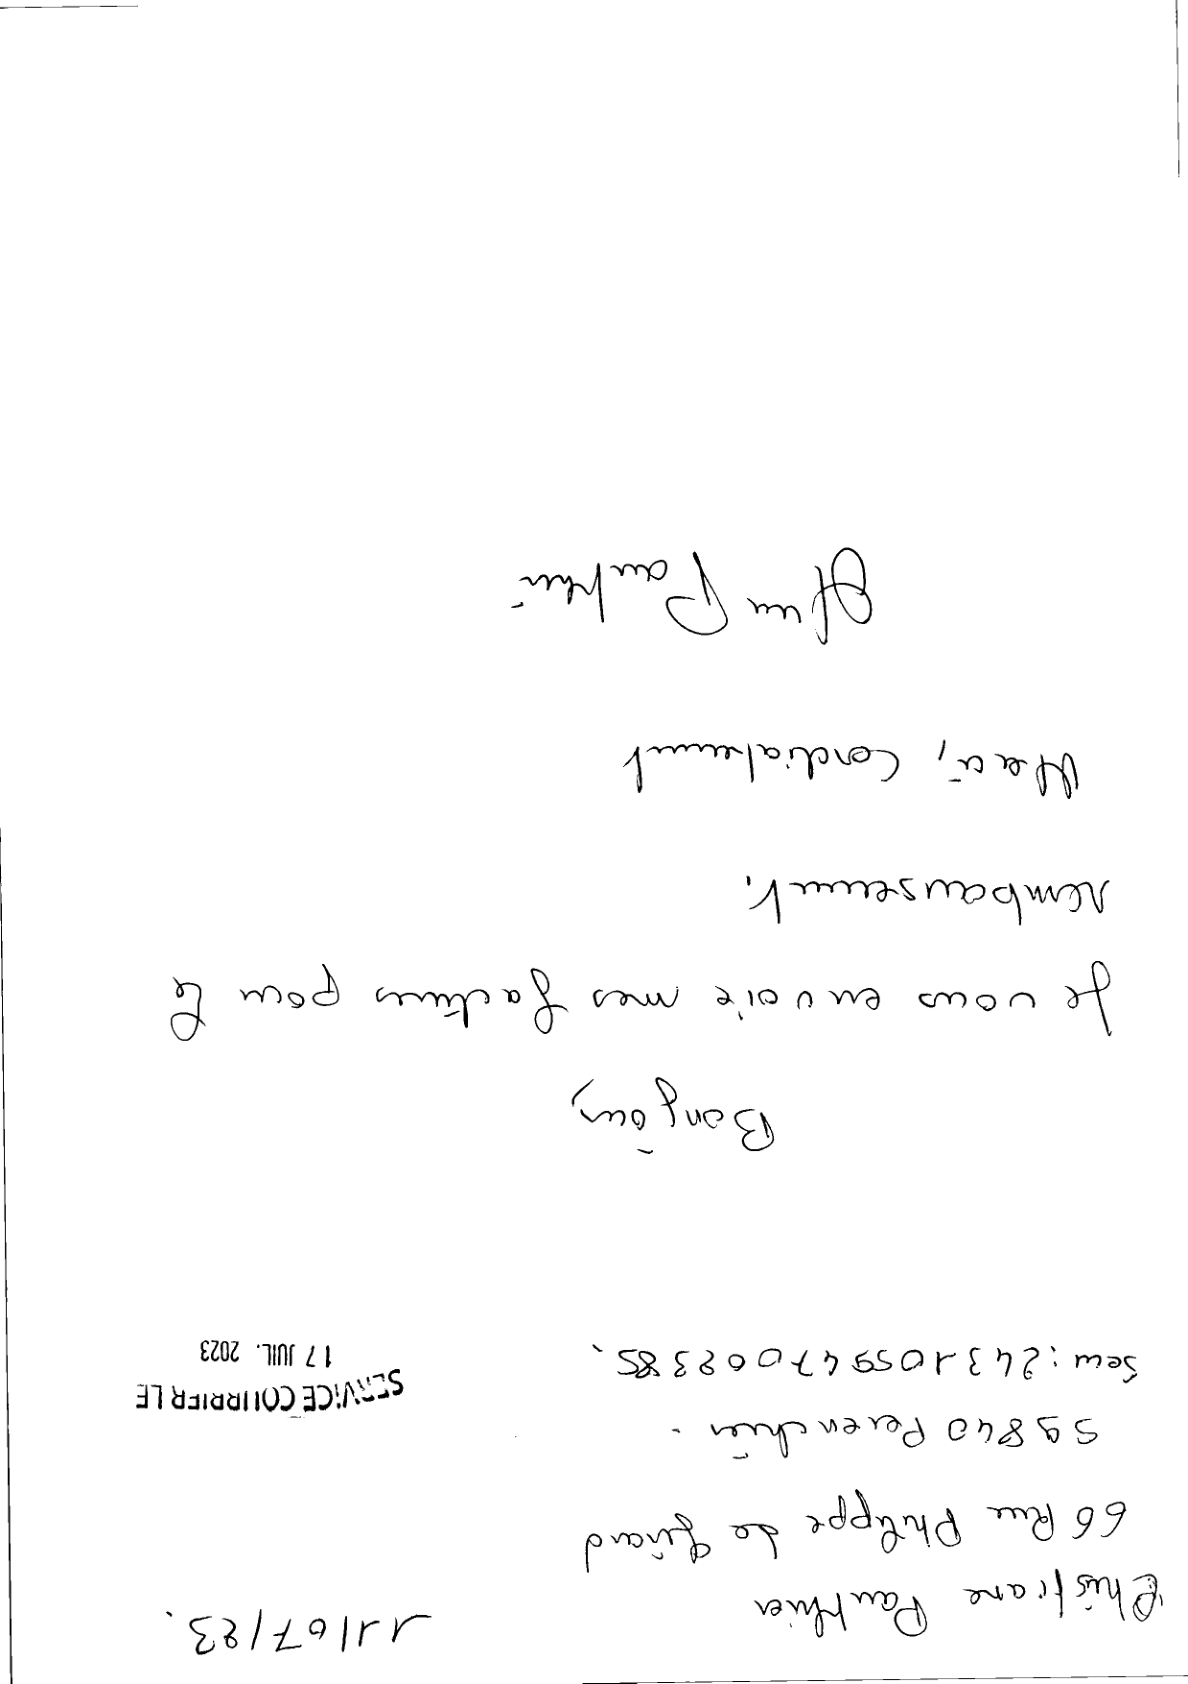 11/07/23.
Christiane Pauthier
66 Rue Philippe de Girard
59840 Perenchies.
Secu : 2431059470023 85.
SERVICE COURRIER LE
17 JUIL. 2023
Bonjour,
Je vous envoie mes factures pour le
remboursement.
Merci, Cordialement
Mme Pauthier